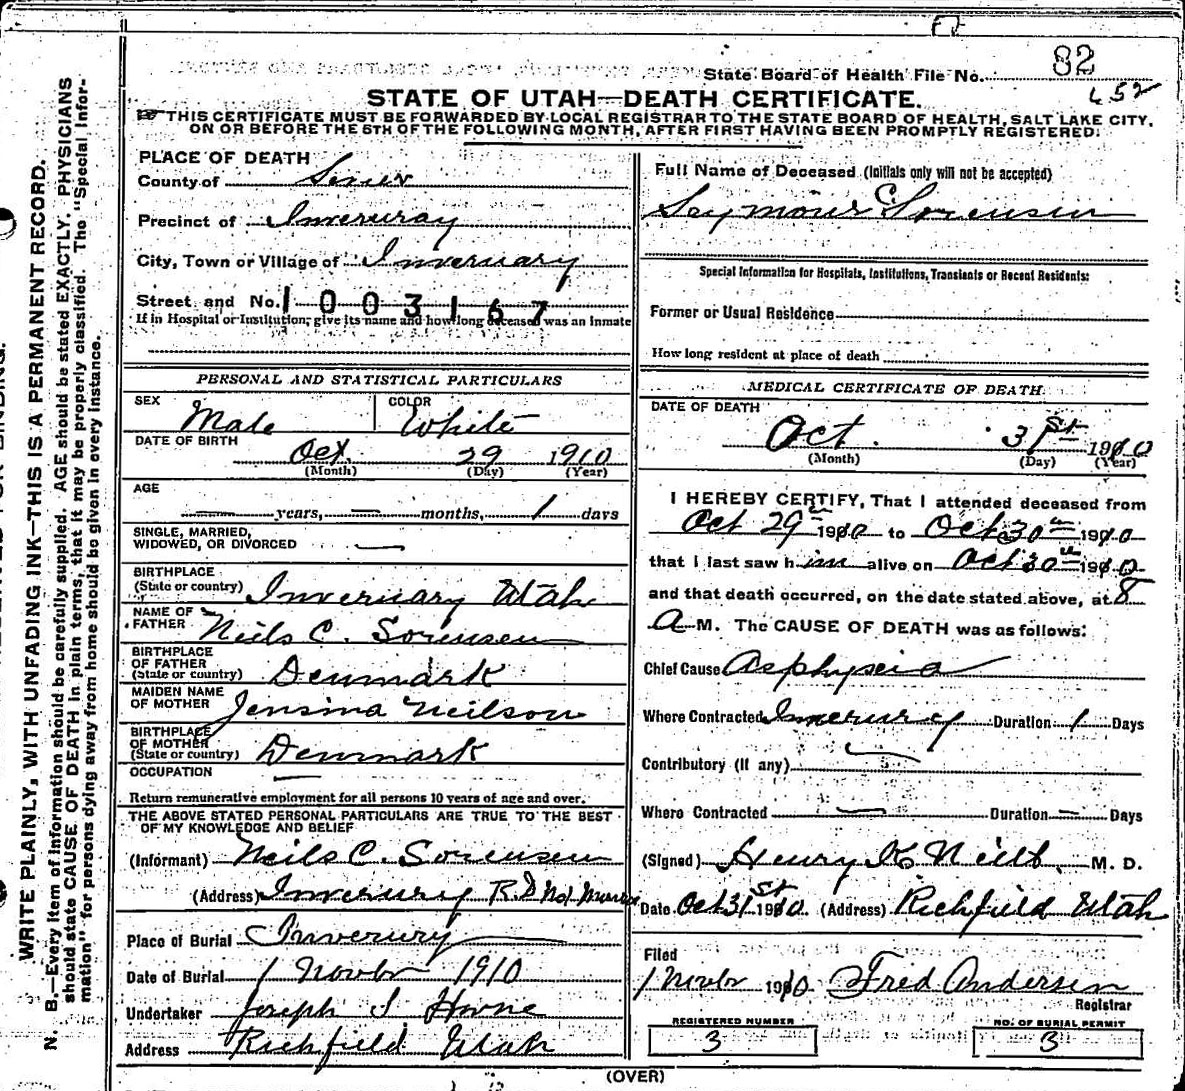 State Board of Health File No. 82
652
STATE OF UTAH—DEATH CERTIFICATE.
THIS CERTIFICATE MUST BE FORWARDED BY LOCAL REGISTRAR TO THE STATE BOARD OF HEALTH, SALT LAKE CITY,
ON OR BEFORE THE 5TH OF THE FOLLOWING MONTH, AFTER FIRST HAVING BEEN PROMPTLY REGISTERED.
WRITE PLAINLY, WITH UNFADING INK—THIS IS A PERMANENT RECORD.
N. B.—Every item of information should be carefully supplied. AGE should be stated EXACTLY. PHYSICIANS
should state CAUSE OF DEATH in plain terms, that it may be properly classified. The "Special Infor-
mation" for persons dying away from home should be given in every instance.
PLACE OF DEATH
County of Sevier
Precinct of Inveruray
City, Town or Village of Inveruary
Street and No. 1003167
If in Hospital or Institution, give its name and how long deceased was an inmate
PERSONAL AND STATISTICAL PARTICULARS
SEX Male COLOR White
DATE OF BIRTH
Oct. 29 1910
(Month) (Day) (Year)
AGE
— years, — months, 1 days
SINGLE, MARRIED,
WIDOWED, OR DIVORCED —
BIRTHPLACE
(State or country) Inveruary Utah
NAME OF
FATHER Neils C. Sorensen
BIRTHPLACE
OF FATHER
(State or country) Denmark
MAIDEN NAME
OF MOTHER Jensina Neilson
BIRTHPLACE
OF MOTHER
(State or country) Denmark
OCCUPATION —
Return remunerative employment for all persons 10 years of age and over.
THE ABOVE STATED PERSONAL PARTICULARS ARE TRUE TO THE BEST
OF MY KNOWLEDGE AND BELIEF
(Informant) Neils C. Sorensen
(Address) Inverury R.D No1
Place of Burial Inverury
Date of Burial 1 Novbr 1910
Undertaker Joseph S Horne
Address Richfield Utah
Full Name of Deceased (Initials only will not be accepted)
Seymour C Sorensen
Special Information for Hospitals, Institutions, Transients or Recent Residents:
Former or Usual Residence
How long resident at place of death
MEDICAL CERTIFICATE OF DEATH
DATE OF DEATH
Oct. 31st 1910
(Month) (Day) (Year)
I HEREBY CERTIFY, That I attended deceased from
Oct 29th 1910 to Oct 30th 1910
that I last saw him alive on Oct 30th 1910
and that death occurred, on the date stated above, at 8
A M. The CAUSE OF DEATH was as follows:
Chief Cause Asphyxia
Where Contracted Inverury Duration 1 Days
Contributory (if any) —
Where Contracted — Duration — Days
(Signed) Henry K Neill M. D.
Date Oct 31st 1910. (Address) Richfield Utah
Filed
1 Novbr 1910. Fred Andersen
Registrar
REGISTERED NUMBER
3
NO. OF BURIAL PERMIT
3
(OVER)